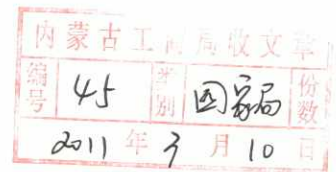 内蒙古工商局收文章
编号 45 类别 国家局 份数
2011 年 3 月 10 日